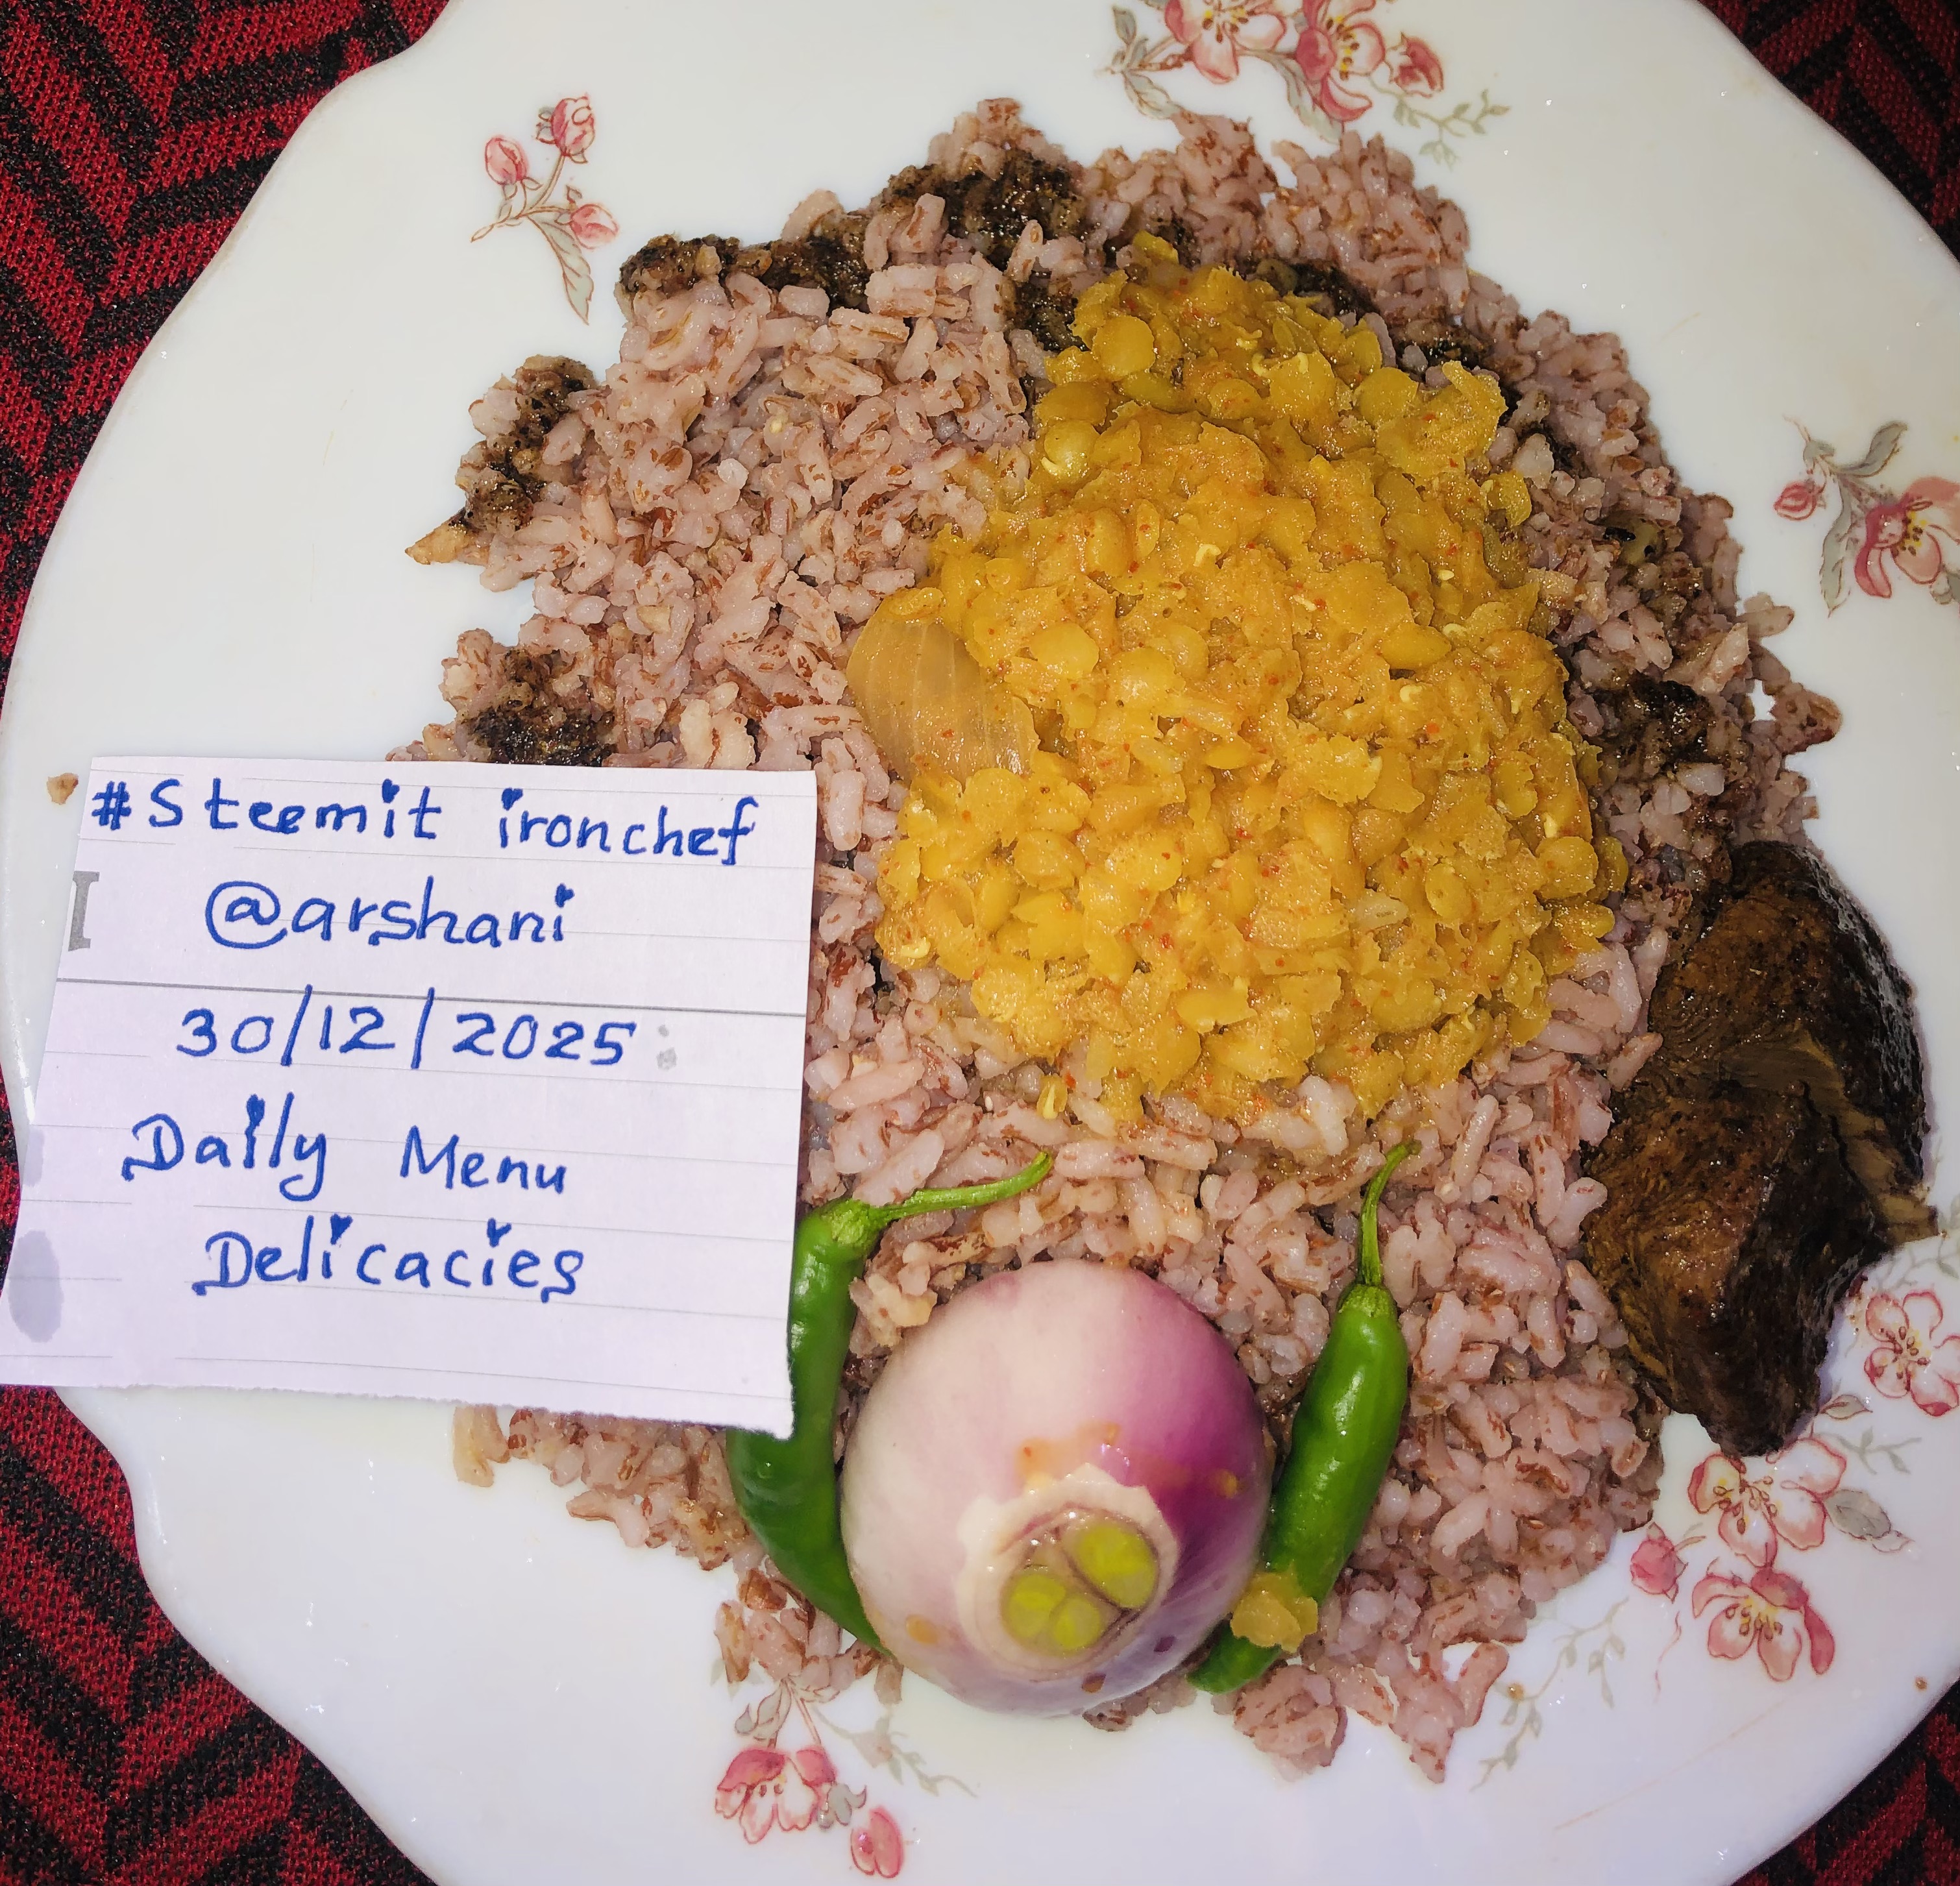 #Steemit ironchef
@arshani
30/12/2025
Daily Menu
Delicacies